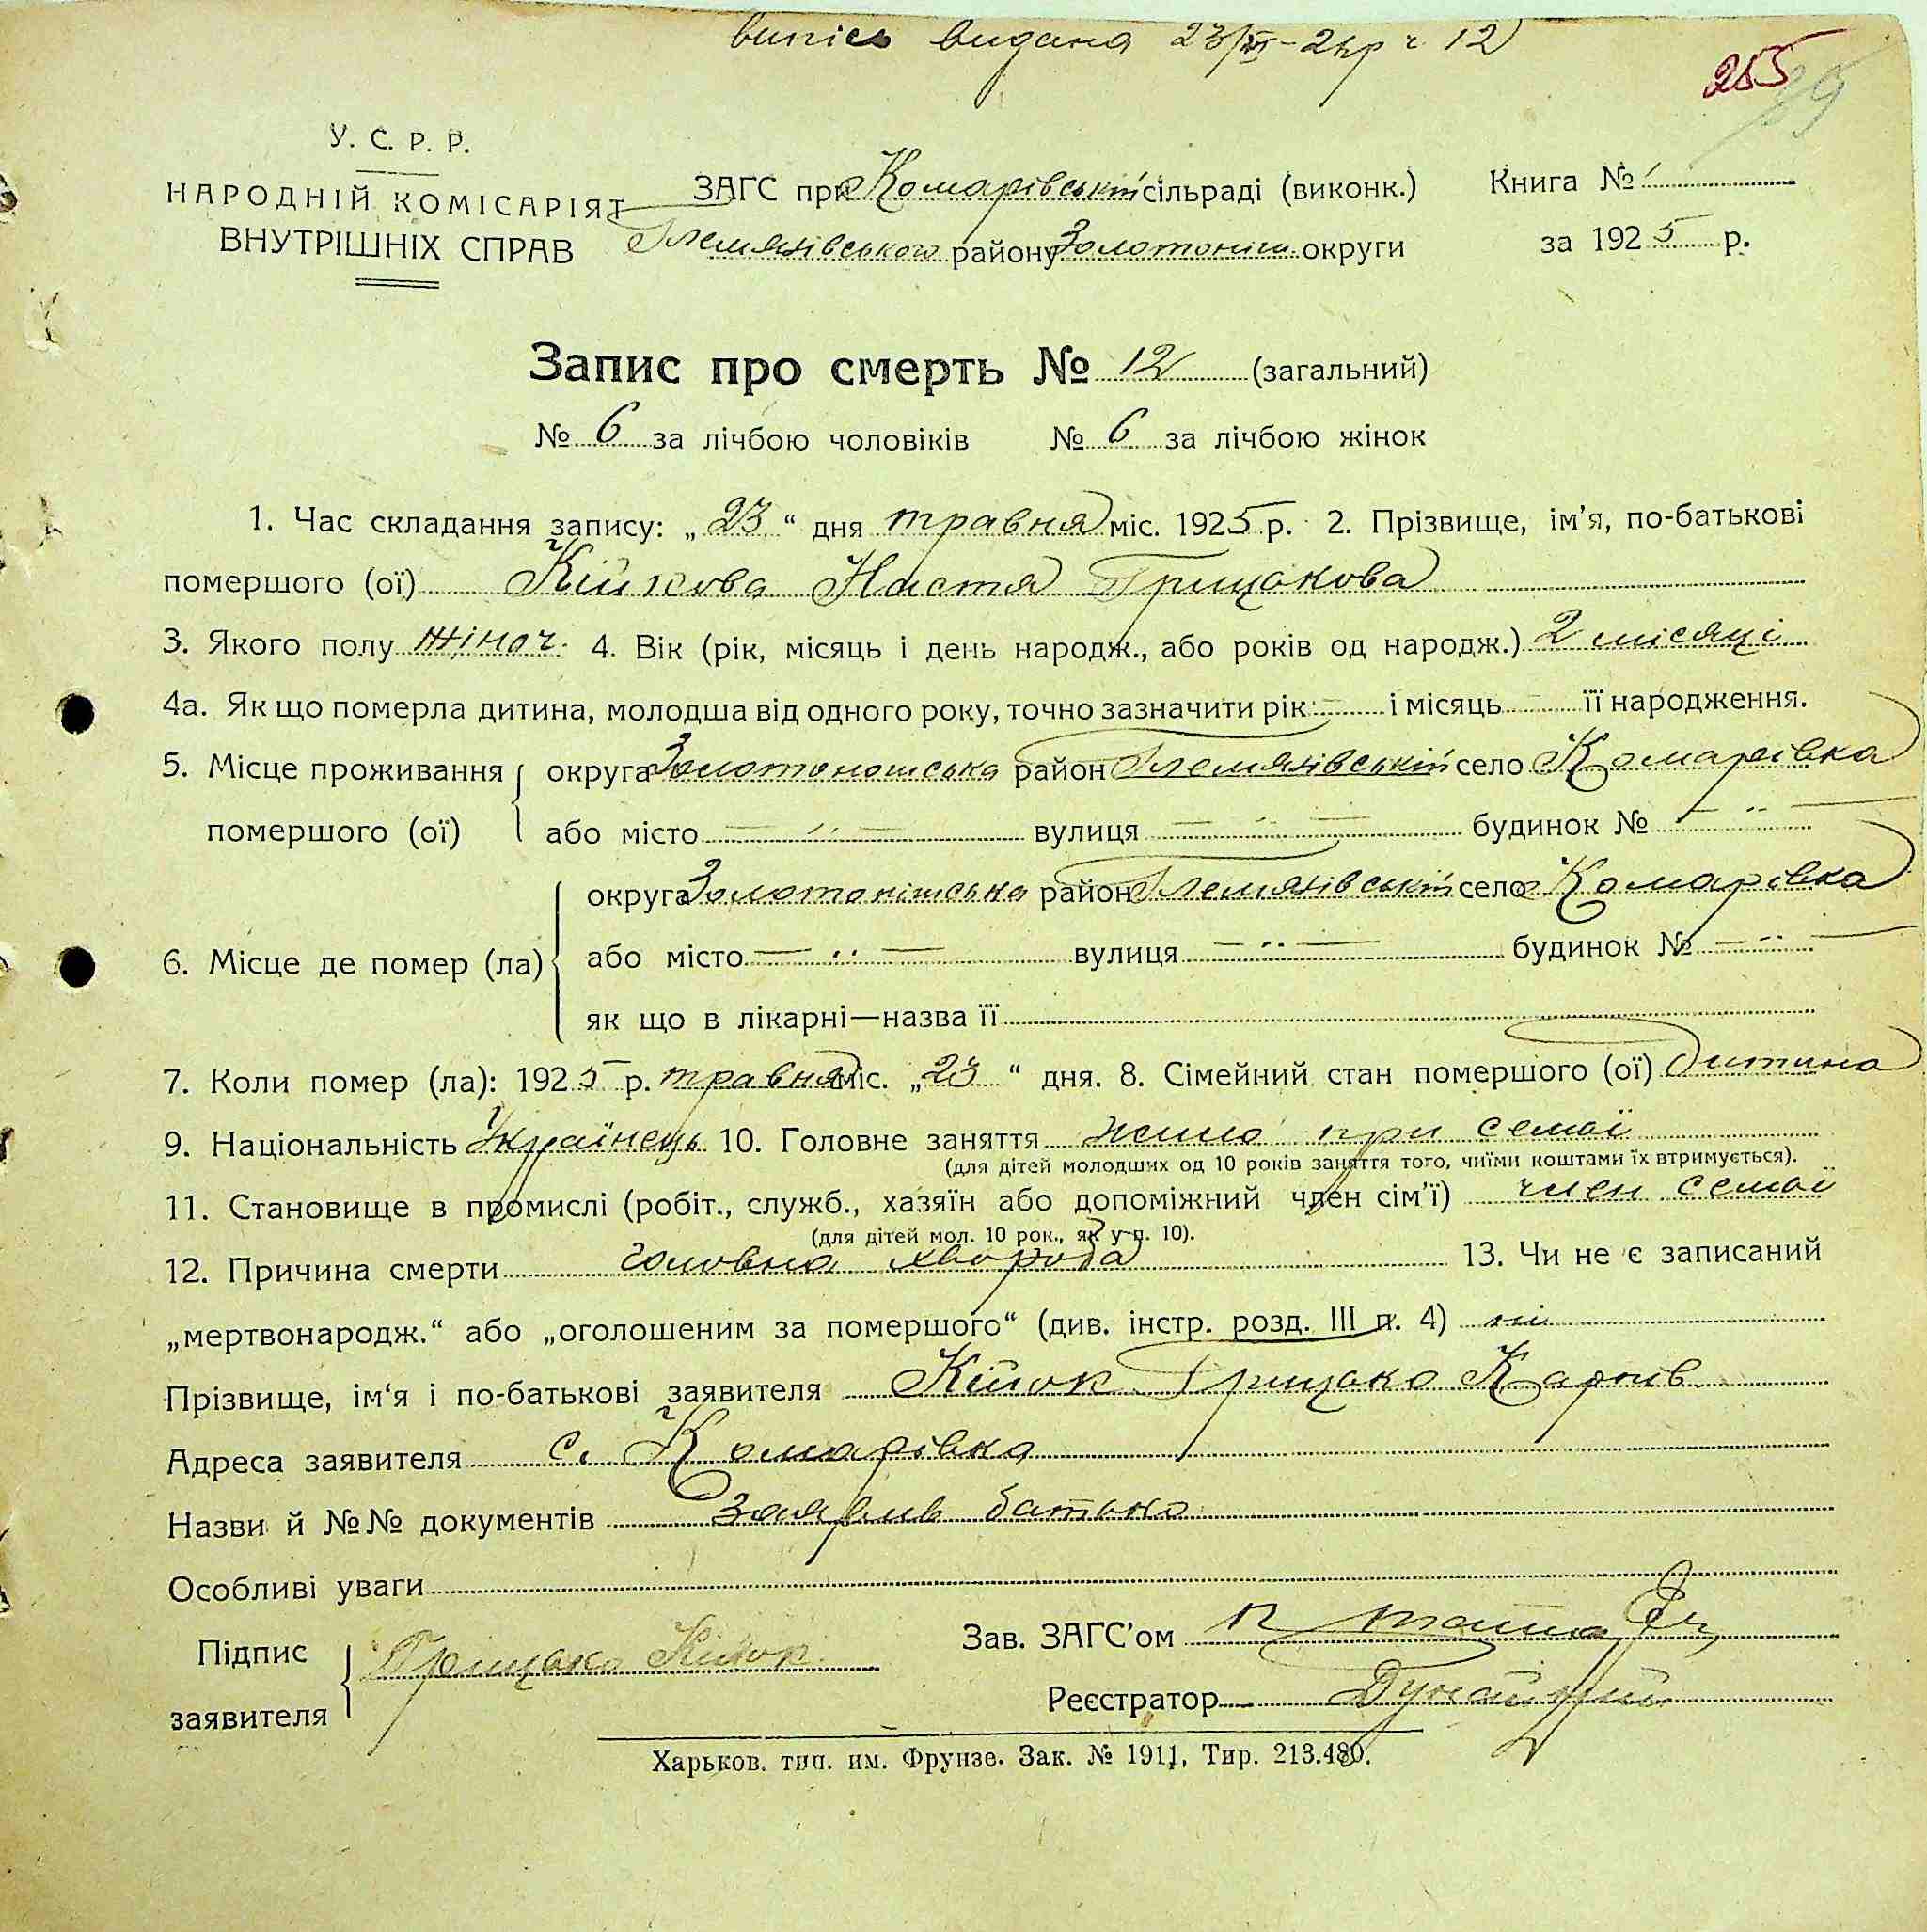 випись видана 23/ - 2 ч 12
255
У. С. Р. Р.
НАРОДНІЙ КОМІСАРІЯТ
ВНУТРІШНІХ СПРАВ
ЗАГС при Комарівській сільраді (виконк.)
Гельмязівського району Золотоніш. округи
Книга № 1
за 1925 р.
Запис про смерть № 12 (загальний)
№ 6 за лічбою чоловіків № 6 за лічбою жінок
1. Час складання запису: „23“ дня травня міс. 1925 р. 2. Прізвище, ім’я, по-батькові
помершого (ої) Кійкова Настя Грицькова
3. Якого полу жіноч. 4. Вік (рік, місяць і день народж., або років од народж.) 2 місяці
4а. Як що померла дитина, молодша від одного року, точно зазначити рік — і місяць — її народження.
5. Місце проживання помершого (ої) округа Золотоношська район Гельмязівській село Комарівка
або місто — „ — вулиця — „ — будинок № — „ —
6. Місце де помер (ла) округа Золотонішська район Гельмязівській село Комарівка
або місто — „ — вулиця — „ — будинок № — „ —
як що в лікарні—назва її
7. Коли помер (ла): 1925 р. травня міс. „23“ дня. 8. Сімейний стан помершого (ої) Дитина
9. Національність Українець 10. Головне заняття жило при семьї
(для дітей молодших од 10 років заняття того, чиїми коштами їх втримується).
11. Становище в промислі (робіт., служб., хазяїн або допоміжний член сім’ї) член семьї
(для дітей мол. 10 рок., як у п. 10).
12. Причина смерти головна хвороба 13. Чи не є записаний
„мертвонародж.“ або „оголошеним за помершого“ (див. інстр. розд. III п. 4) ні
Прізвище, ім‘я і по-батькові заявителя Кійок Грицько Карпів
Адреса заявителя с. Комарівка
Назви й №№ документів Заявив батько
Особливі уваги
Підпис заявителя Грицько Кійок
Зав. ЗАГС’ом
Реєстратор Дунайський
Харьков. тип. им. Фрунзе. Зак. № 1911, Тир. 213.480.